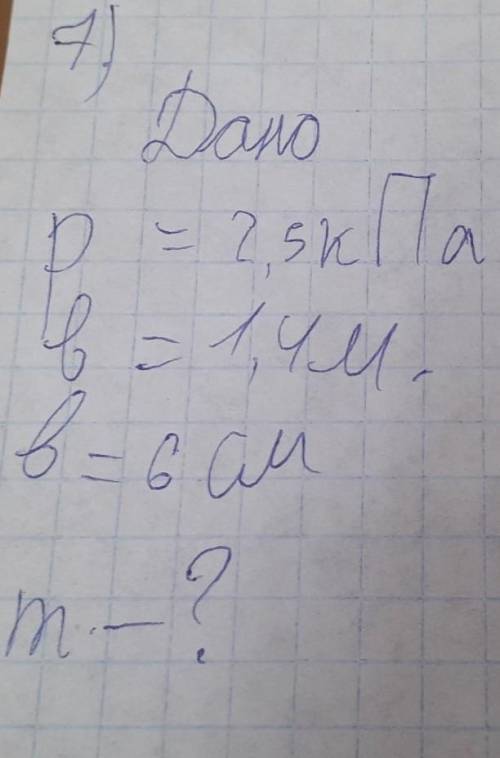 7)
Дано
p = 2,5кПа
b = 1,4м.
b = 6 см
m - ?